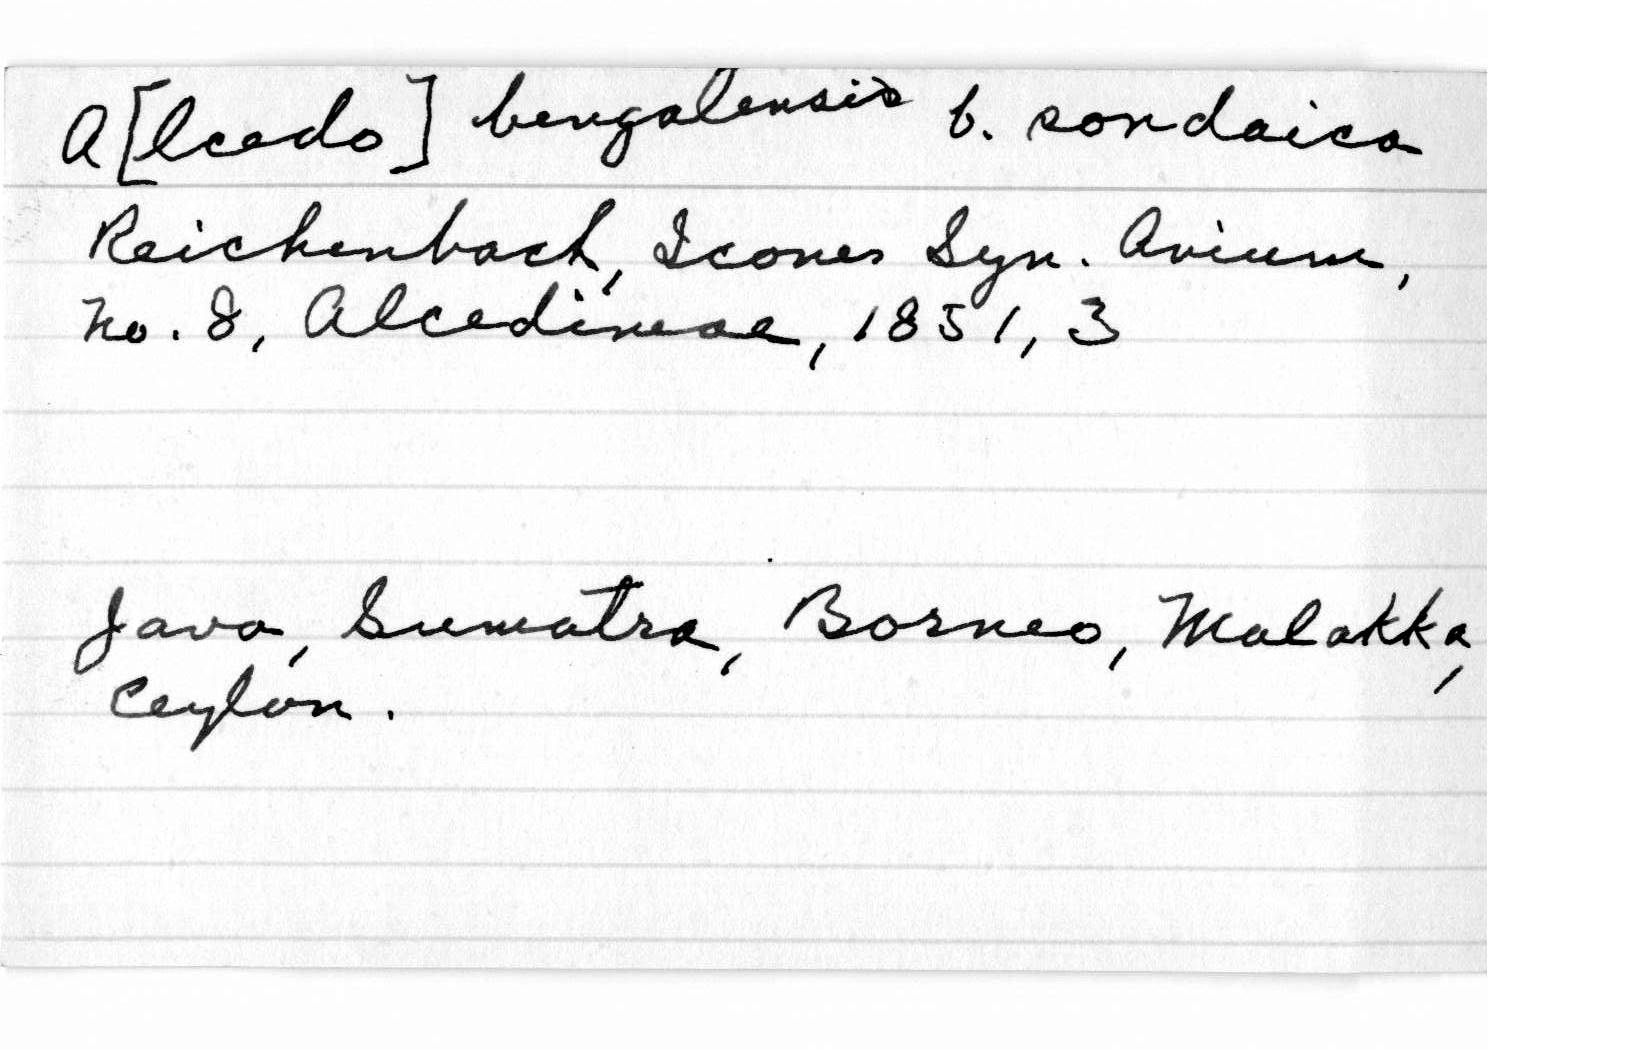 A[lcedo] bengalensis b. sondaica
Reichenbach, Icones Syn. Avium,
No. 8, Alcedineae, 1851, 3
Java, Sumatra, Borneo, Malakka,
Ceylon.